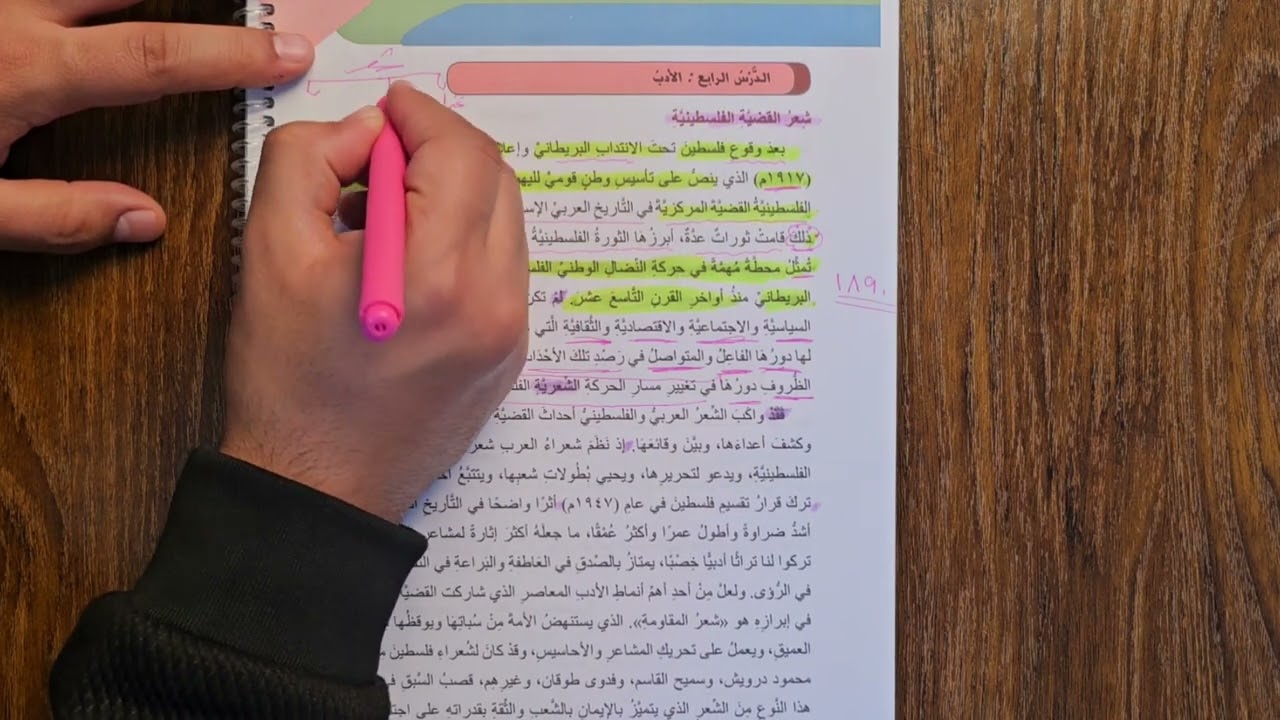 شعر
الدَّرْسُ الرابع : الأدبُ
شِعرُ القضيَّة الفلسطينيَّة
بعدِ وقوعِ فلسطينَ تحتَ الانتدابِ البريطانيِّ وإعلا
(١٩١٧م) الذي ينصُّ على تأسيسِ وطنٍ قوميٍّ لليه
الفلسطينيَّةُ القضيَّةَ المركزيَّةَ في التَّاريخِ العربيِّ الإس
ذلكَ قامتْ ثوراتٌ عدَّةٌ، أبرزُها الثورةُ الفلسطينيَّةُ
تُمثِّلُ محطَّةً مُهمَّةً في حركةِ النِّضالِ الوطنيِّ الفلس
البريطانيِّ منذُ أواخرِ القرنِ التَّاسعَ عشرَ. لمْ تكن
١٨٩٠
السياسيَّةِ والاجتماعيَّةِ والاقتصاديَّةِ والثَّقافيَّةِ الَّتي
لها دورُهَا الفاعِلُ والمتواصلُ في رَصْدِ تلكَ الأحْدَا
الظُّروفِ دورُهَا في تغييرِ مسارِ الحركةِ الشِّعريَّةِ الفلس
فقدْ واكبَ الشِّعرُ العربيُّ والفلسطينيُّ أحداثَ القضيَّةِ
وكشفَ أعداءَها، وبيَّنَ وقائعَهَا. إذ نَظَمَ شعراءُ العربِ شعر
الفلسطينيَّةِ، ويدعو لتحريرِها، ويحيي بُطُولاتِ شعبها، ويتتبَّعُ
تركَ قرارُ تقسيمِ فلسطينَ في عامِ (١٩٤٧م) أثرًا واضحًا في التَّأريخِ
أشدُّ ضراوةً وأطولُ عمرًا وأكثرُ عُمْقًا، ما جعلَهُ أكثرَ إثارةً لمشاعر
تركوا لنا تراثًا أدبيًّا خِصْبًا، يمتازُ بالصِّدقِ في العَاطفةِ والبَراعةِ في
في الرُّؤى. ولعلَّ مِنْ أحدِ أهمِّ أنماطِ الأدبِ المعاصرِ الذي شاركت القضيَّة
في إبرازِهِ هو «شعرُ المقاومةِ». الذي يستنهضُ الأمةَ مِنْ سُباتِهَا ويوقظُها
العميقِ، ويعملُ على تحريكِ المشاعرِ والأحاسيسِ، وقدْ كانَ لشُعراءِ فلسطينَ
محمود درويش، وسميح القاسم، وفدوى طوقان، وغيرِهِم، قصبُ السَّبقِ
هذا النَّوعِ مِنَ الشعرِ الذي يتميَّزُ بالإيمانِ بالشَّعبِ والثِّقةِ بقدراتِهِ على